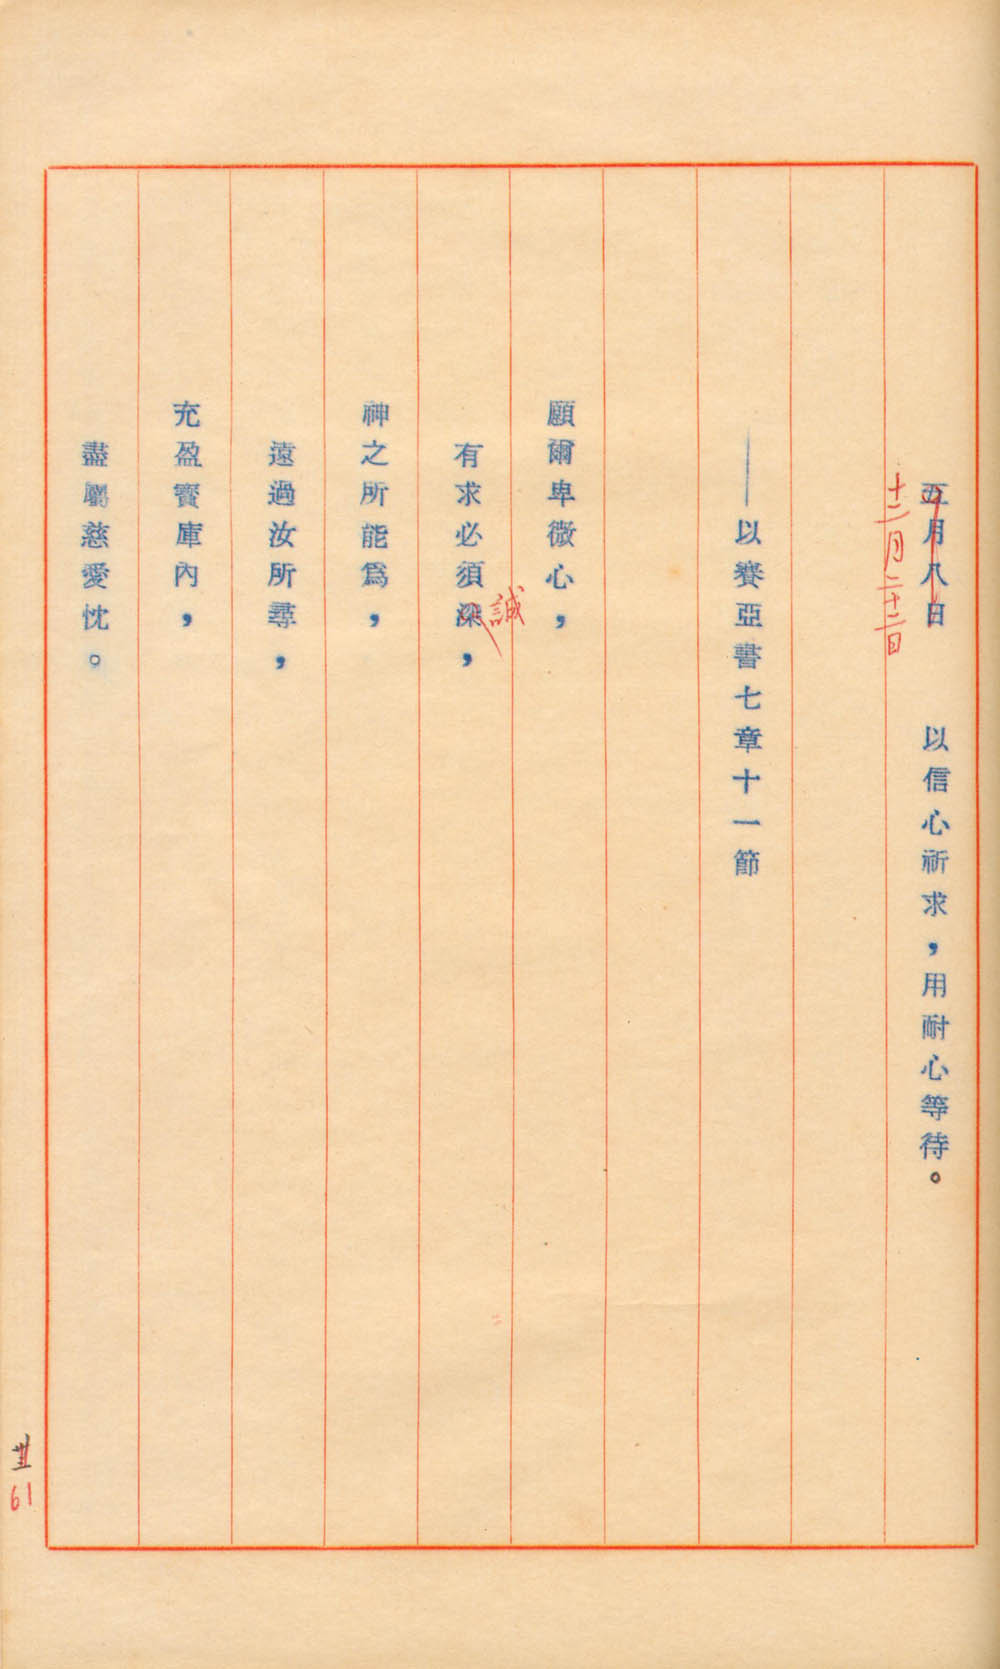 五月八日　以信心祈求，用耐心等待。
十二月二十二日
——以賽亞書七章十一節
願爾卑微心，
有求必須深，
誠
神之所能爲，
遠過汝所尋，
充盈寶庫內，
盡屬慈愛忱。
61